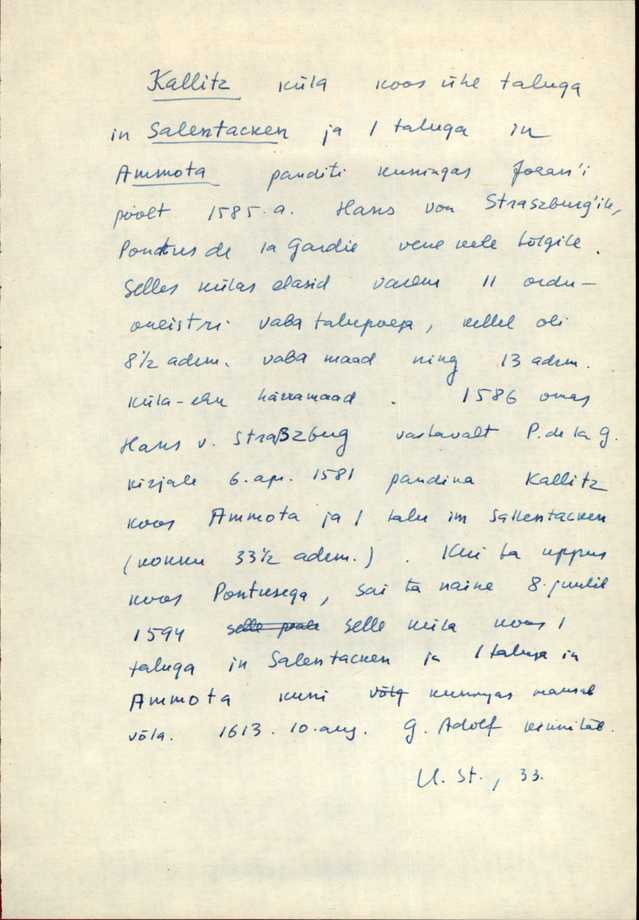 Kallitz küla koos ühe taluga
in Salentacken ja 1 taluga in
Ammota panditi kuningas Joean'i
poolt 1585.a. Hans von Straszburg'ile,
Pontus de la Gardie vene keele tõlgile.
Selles külas elasid varem 11 ordu-
meistri vaba talupoega, kellel oli
8½ adrm. vaba maad ning 13 adrm.
küla- ehk härramaad. 1586 omas
Hans v. Straszburg vastavalt P. de la G.
kirjale 6. apr. 1581 pandina Kallitz
koos Ammota ja 1 talu im Salentacken
(kokku 33½ adrm.). Kui ta uppus
koos Pontusega, sai ta naine 8. juulil
1594 selle peale selle küla koos 1
taluga in Salentacken ja 1 taluga in
Ammota kuni võlg kuningas maksab
võla. 1613. 10. aug. G. Adolf kinnitab.
U. St., 33.